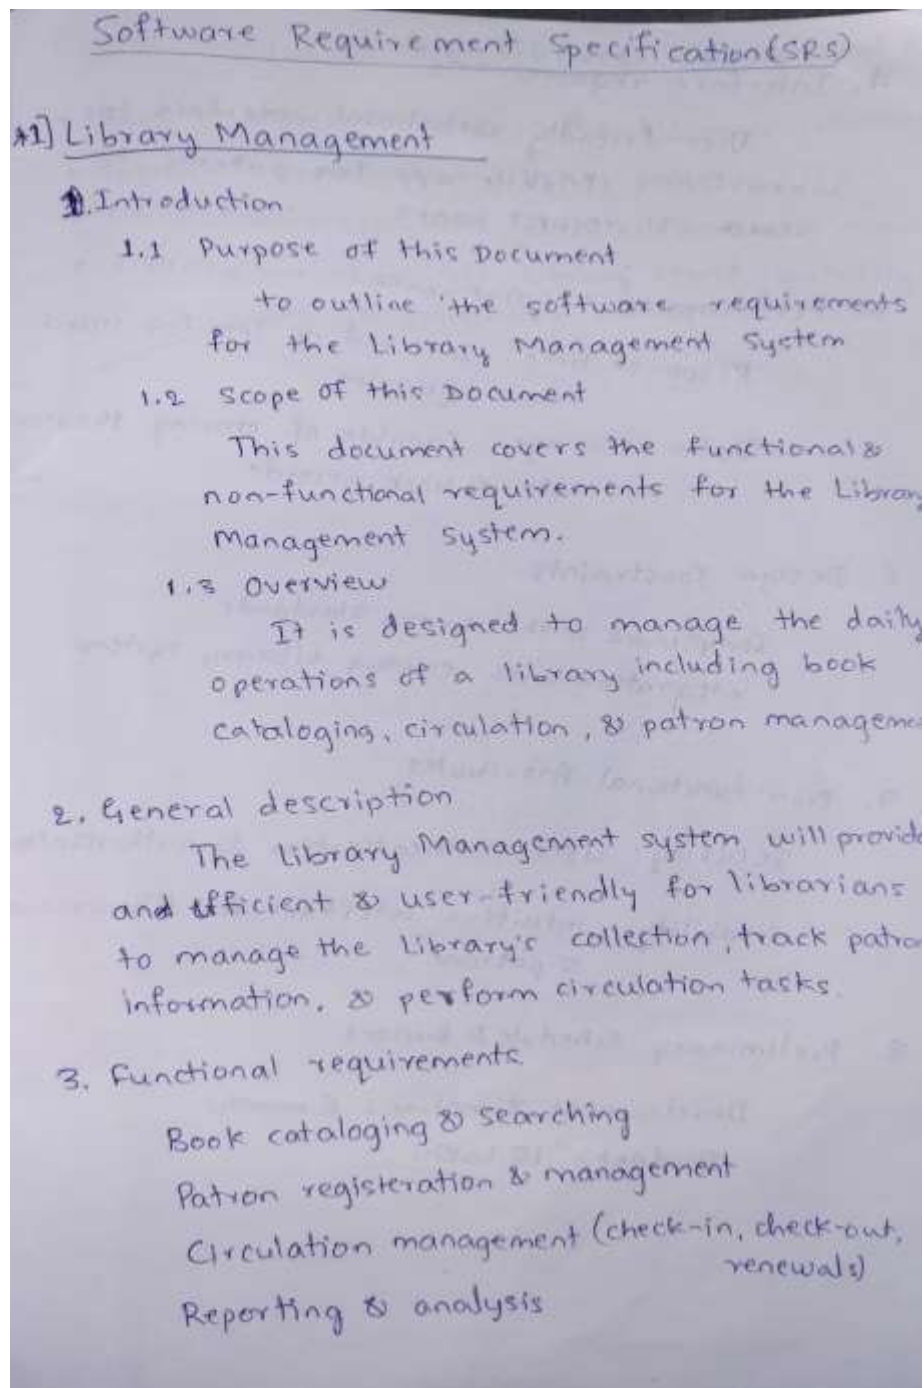 Software Requirement Specification (SRS)
*1] Library Management
1. Introduction
1.1 Purpose of this Document
to outline the software requirements
for the Library Management System
1.2 Scope of this Document
This document covers the functional &
non-functional requirements for the Library
Management System.
1.3 Overview
It is designed to manage the daily
operations of a library including book
cataloging, circulation, & patron manageme
2. General description
The Library Management system will provide
and efficient & user-friendly for librarians
to manage the Library's collection, track patro
information, & perform circulation tasks.
3. Functional requirements
Book cataloging & searching
Patron registeration & management
Circulation management (check-in, check-out,
renewals)
Reporting & analysis